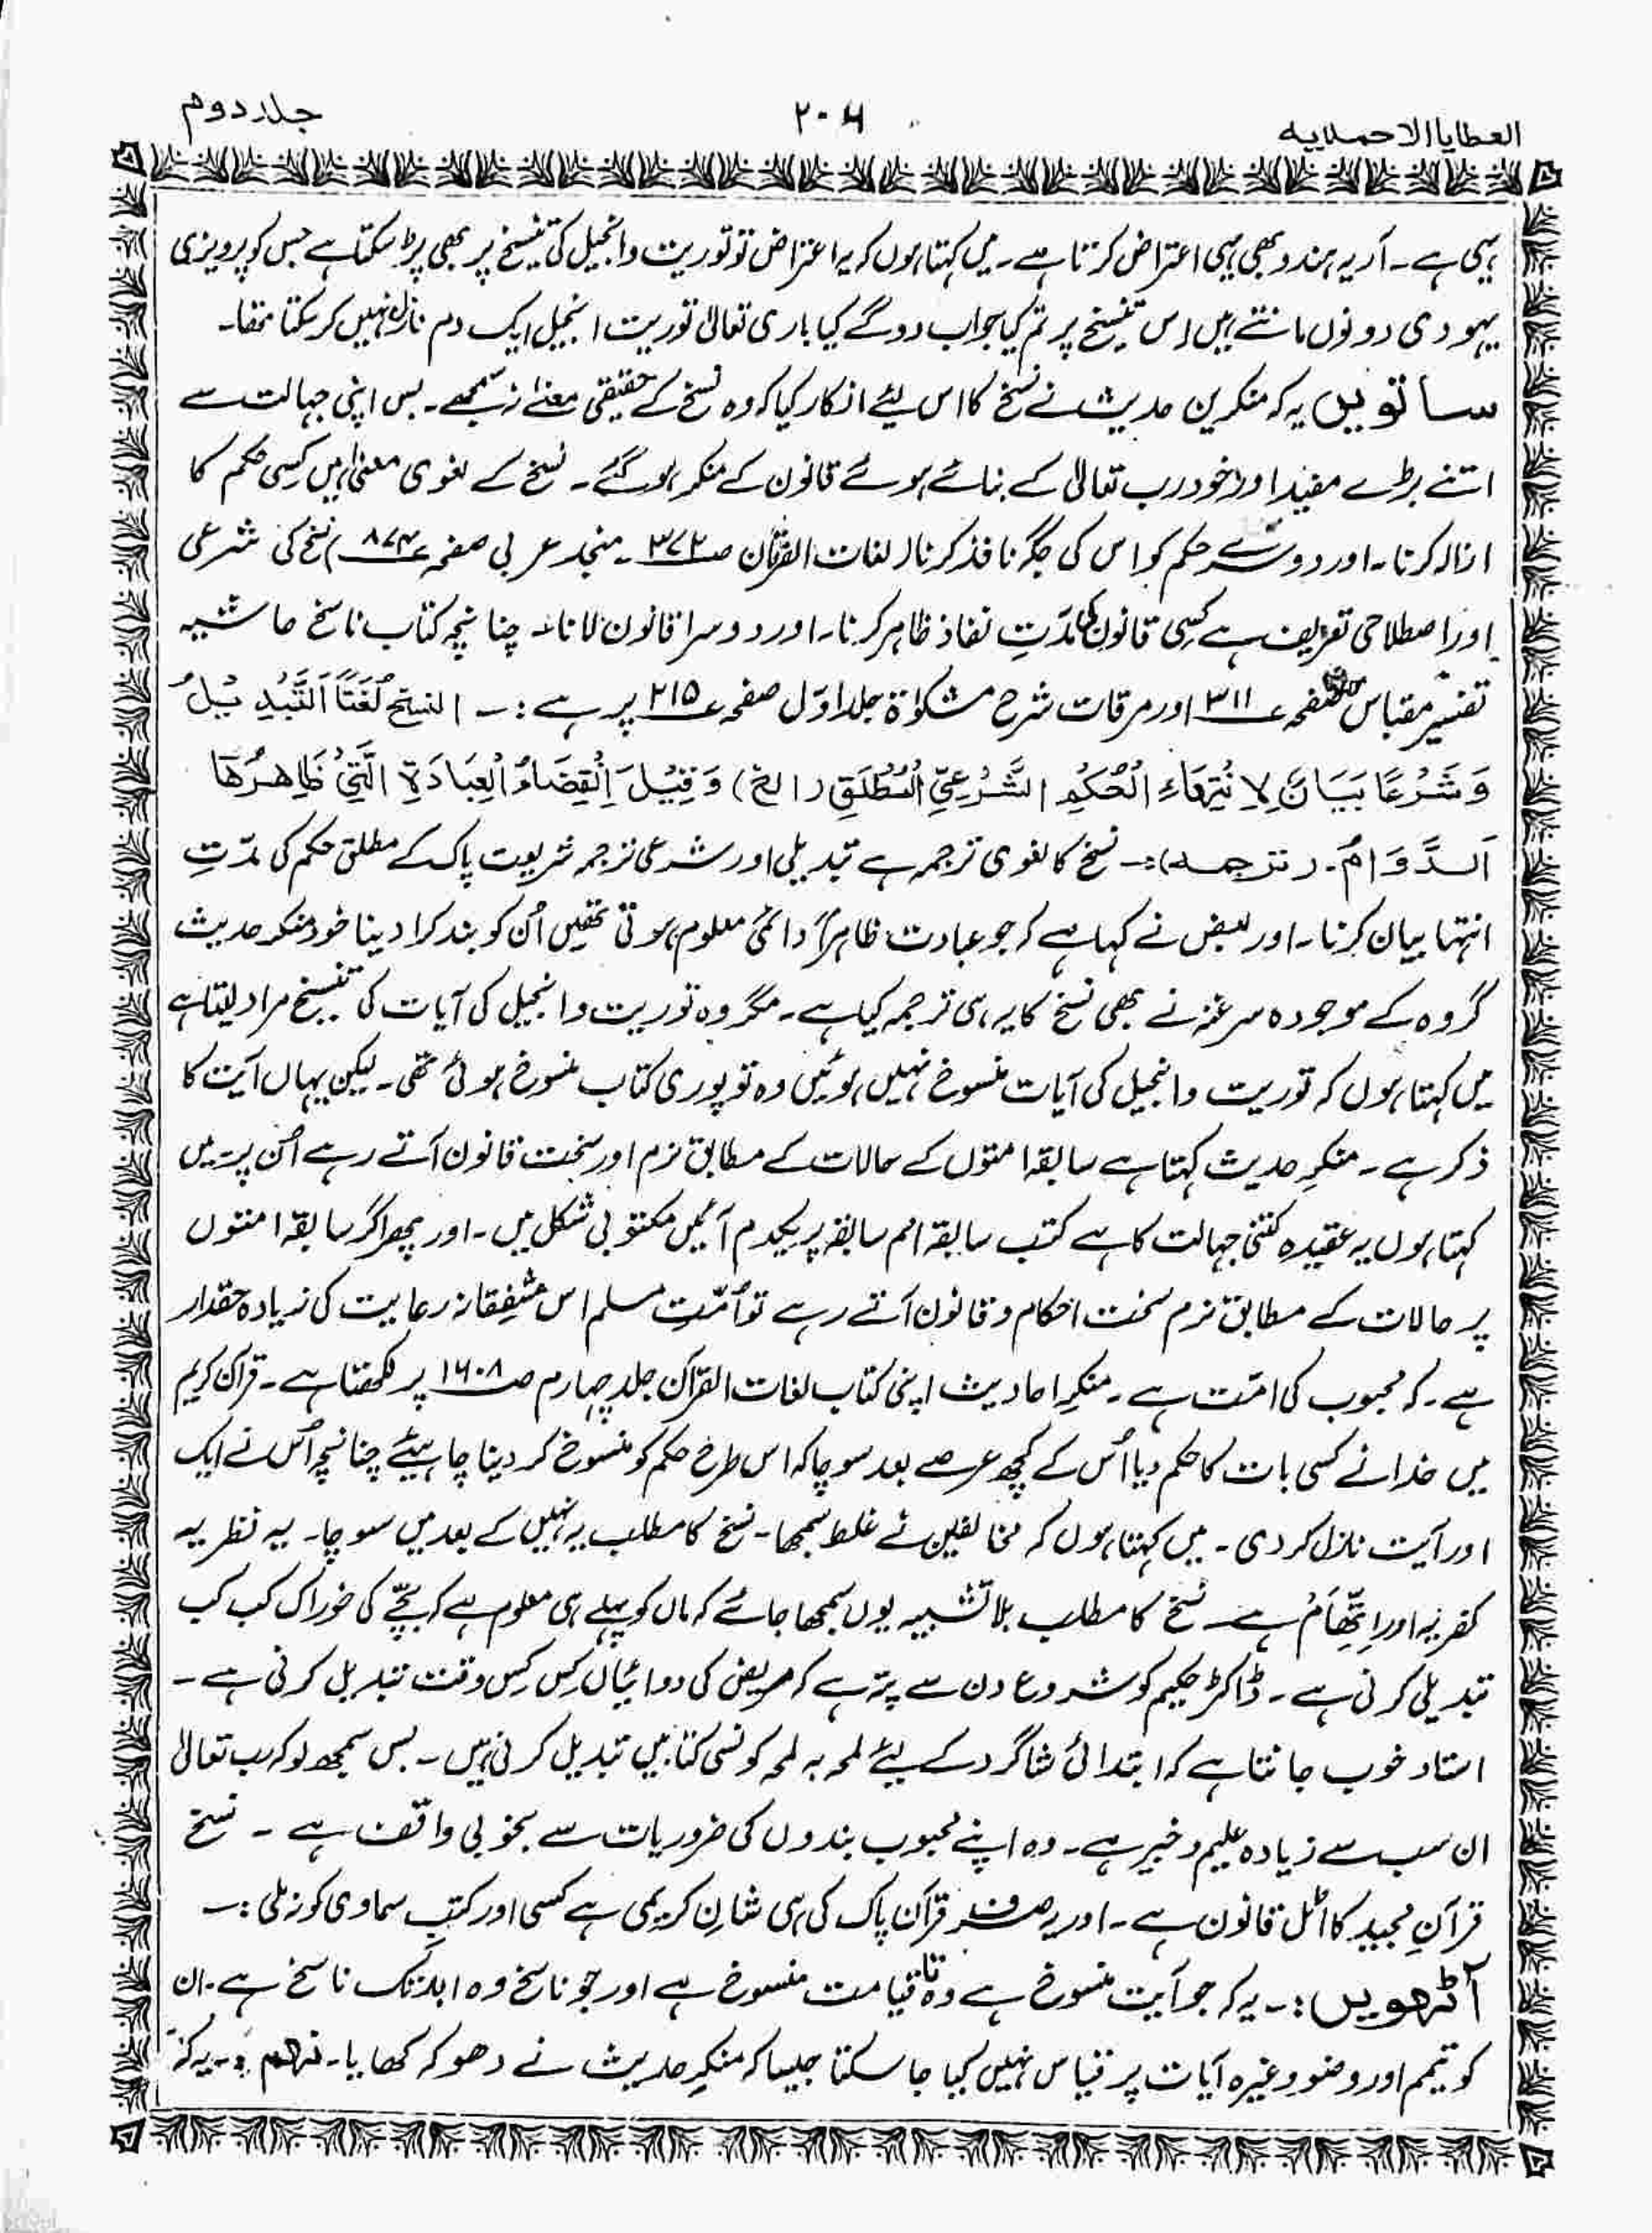 العطایا الاحمدیہ
۲۰۶
جلد دوم
یہی ہے۔ آریہ ہندو بھی یہی اعتراض کرتا ہے۔ میں کہتا ہوں کہ یہ اعتراض تو توریت و انجیل کی تنسیخ پر بھی پڑ سکتا ہے جس کو پرویزی
یہودی دونوں مانتے ہیں اس تنسیخ پر تم کیا جواب دو گے کیا باری تعالیٰ توریت انجیل ایک دم نازل نہیں کر سکتا تھا۔
ساتویں یہ کہ منکرین حدیث نے نسخ کا اس لئے انکار کیا کہ وہ نسخ کے حقیقی معنےٰ نہ سمجھے۔ بس اپنی جہالت سے
اتنے بڑے مفید اور خود رب تعالیٰ کے بنائے ہوئے قانون کے منکر ہو گئے۔ نسخ کے لغوی معنیٰ ہیں کسی حکم کا
ازالہ کرنا۔ اور دوسرے حکم کو اس کی جگہ نافذ کرنا (لغات القرآن صـ ۳۷۲۔ منجد عربی صفحہ ۸۷۳) نسخ کی شرعی
اور اصطلاحی تعریف ہے کسی قانون کی مدّتِ نفاذ ظاہر کرنا۔ اور دوسرا قانون لانا۔ چنانچہ کتاب ناسخ حاشیہ
تفسیر مقباس صفحہ ۳۱۱ اور مرقات شرح مشکوٰۃ جلد اوّل صفحہ ۲۱۵ پر ہے :۔ النسخ لُغَتًا اَلتَّبْدِیْلُ
وَ شَرْعًا بَیَانٌ لِاِنْتِهَاءِ الْحُكْمِ الشَّرْعِیِّ الْمُطْلَقِ (الخ) وَ قِیْلَ اِنْقِضَاءُ الْعِبَادَةِ الَّتِیْ ظَاهِرُهَا
اَلدَّوَامُ۔ (ترجمہ):۔ نسخ کا لغوی ترجمہ ہے تبدیلی اور شرعی ترجمہ شریعت پاک کے مطلق حکم کی مدّتِ
انتہا بیان کرنا۔ اور بعض نے کہا ہے کہ جو عبادت ظاہراً دائمی معلوم ہوتی تھیں اُن کو بند کرا دینا خود منکر حدیث
گروہ کے موجودہ سرغنہ نے بھی نسخ کا یہ ہی ترجمہ کیا ہے۔ مگر وہ توریت و انجیل کی آیات کی تنسیخ مراد لیتا ہے
میں کہتا ہوں کہ توریت و انجیل کی آیات منسوخ نہیں ہوئیں وہ تو پوری کتاب منسوخ ہوئی تھی۔ لیکن یہاں آیت کا
ذکر ہے۔ منکرِ حدیث کہتا ہے سابقہ امتوں کے حالات کے مطابق نرم اور سخت قانون آتے رہے اُن پر۔ میں
کہتا ہوں یہ عقیدہ کتنی جہالت کا ہے کتب سابقہ امم سابقہ پر یکدم آئیں مکتوبی شکل میں۔ اور پھر اگر سابقہ امتوں
پر حالات کے مطابق نرم سخت احکام و قانون آتے رہے تو اُمّتِ مسلم اس مُشفِقانہ رعایت کی زیادہ حقدار
ہے۔ کہ محبوب کی امّت ہے۔ منکرِ احادیث اپنی کتاب لغات القرآن جلد چہارم صـ ۱۶۰۸ پر لکھتا ہے۔ قرآن کریم
میں خدا نے کسی بات کا حکم دیا اُس کے کچھ عرصے بعد سوچا کہ اس طرح حکم کو منسوخ کر دینا چاہیئے چنانچہ اُس نے ایک
اور آیت نازل کر دی۔ میں کہتا ہوں کہ مخالفین نے غلط سمجھا۔ نسخ کا مطلب یہ نہیں کے بعد میں سوچا۔ یہ نظریہ
کفریہ اور اِتِّهَام ہے۔ نسخ کا مطلب بلا تشبیہ یوں سمجھا جائے کہ ماں کو پہلے ہی معلوم ہے کہ بچّے کی خوراک کب کب
تبدیلی کرنی ہے۔ ڈاکٹر حکیم کو شروع دن سے پتہ ہے کہ مریض کی دوائیاں کِس کِس وقت تبدیل کرنی ہے۔
استاد خوب جانتا ہے کہ ابتدائی شاگرد کے لیئے لمحہ بہ لمحہ کونسی کتابیں تبدیل کرنی ہیں۔ بس سمجھ لو کہ رب تعالیٰ
ان سب سے زیادہ علیم و خبیر ہے۔ وہ اپنے محبوب بندوں کی ضروریات سے بخوبی واقف ہے ۔ نسخ
قرآنِ مجید کا اٹل قانون ہے۔ اور یہ صرف قرآن پاک کی ہی شانِ کریمی ہے کسی اور کتبِ سماوی کو نہ ملی :۔
آٹھویں :۔ یہ کہ جو آیت منسوخ ہے وہ تا قیامت منسوخ ہے اور جو ناسخ وہ ابد تک ناسخ ہے۔ ان
کو تیمم اور وضو وغیرہ آیات پر قیاس نہیں کیا جا سکتا جیسا کہ منکرِ حدیث نے دھوکہ کھایا۔ نہم :۔ یہ کہ